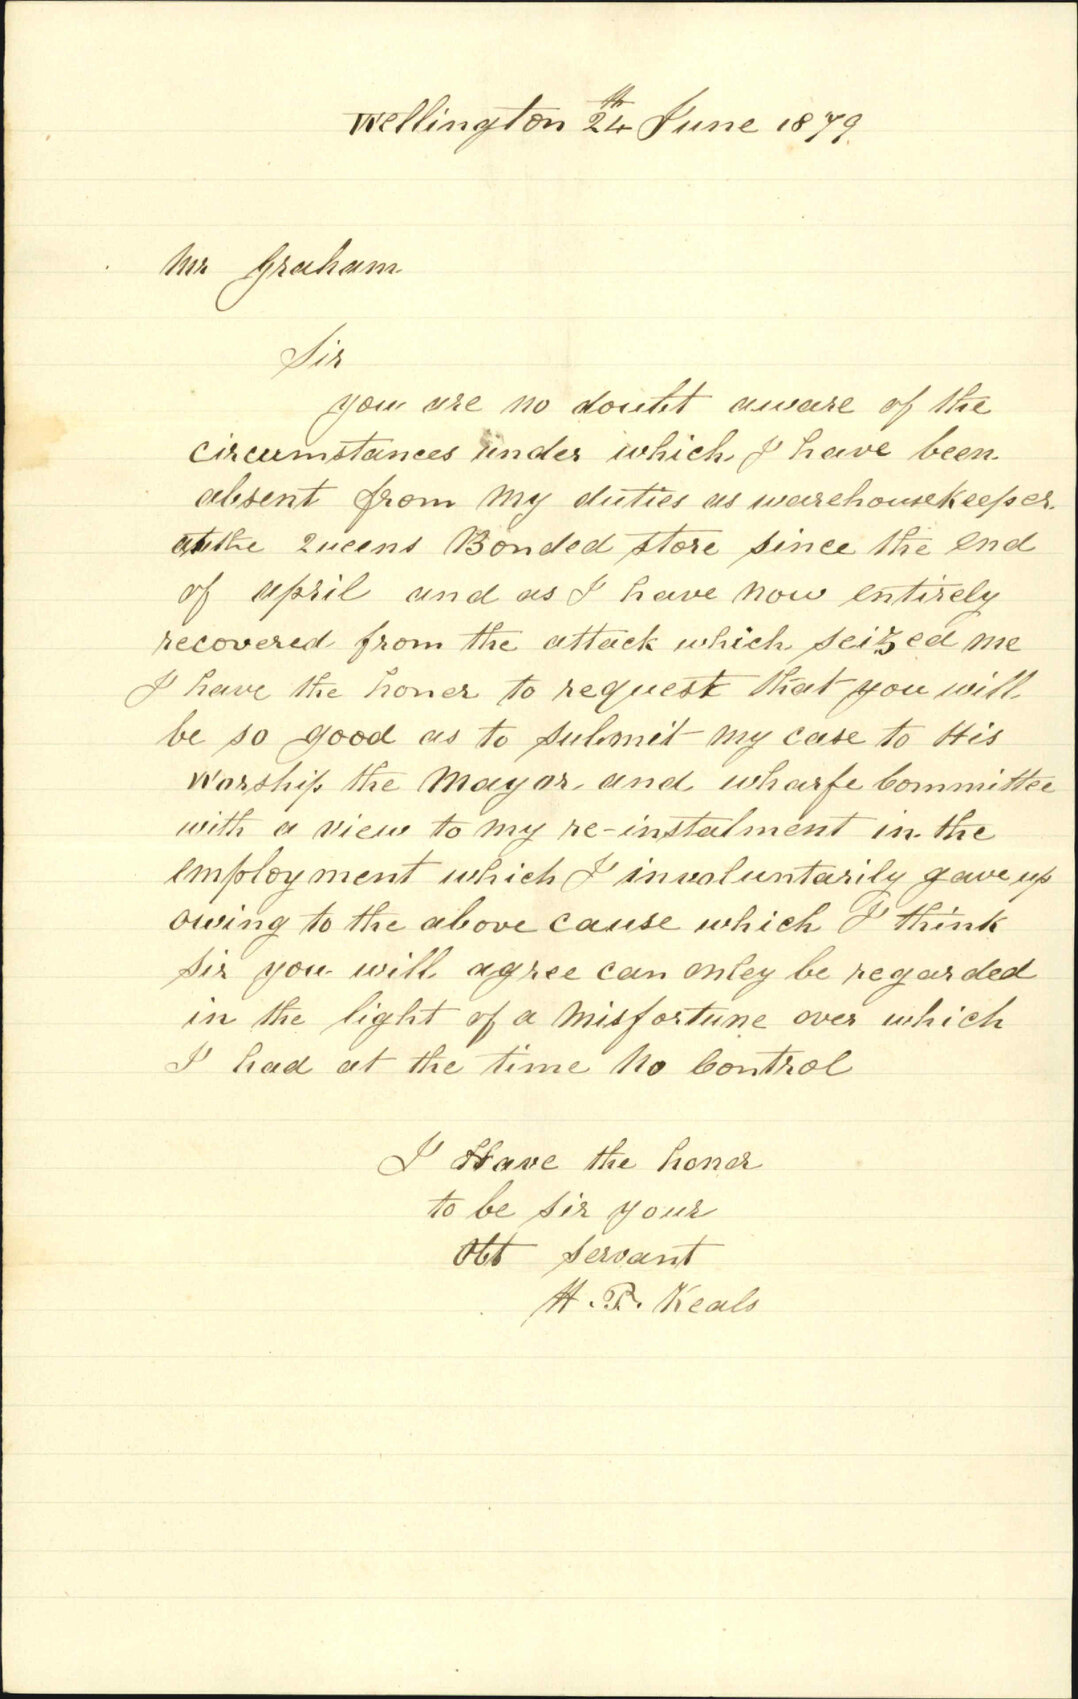 Wellington 24th June 1879
Mr Graham
Sir
you are no doubt aware of the
circumstances under which I have been
absent from my duties as warehousekeeper
at the Queens Bonded store since the end
of april and as I have now entirely
recovered from the attack which seized me
I have the honer to request that you will
be so good as to submit my case to His
Worship the Mayor and wharfe Committee
with a view to my re-instalment in the
employment which I involuntarily gave up
owing to the above cause which I think
sir you will agree can onley be regarded
in the light of a misfortune over which
I had at the time no Control
I Have the honor
to be sir your
Obt servant
H. T. Keals